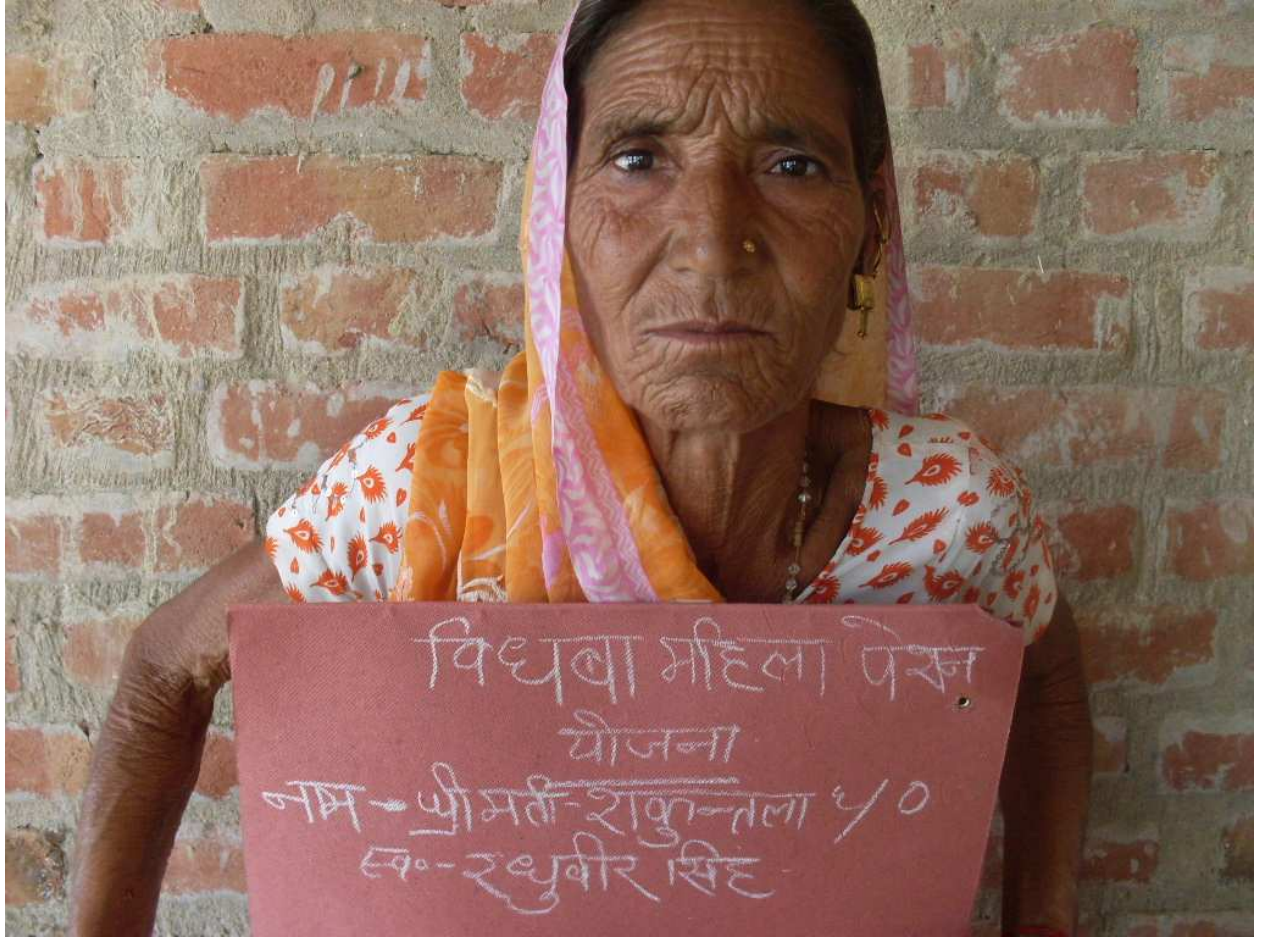 विधबा महिला पेंशन
योजना
नाम - श्रीमती - शकुन्तला ५/०
स्व०- रघुवीर सिंह